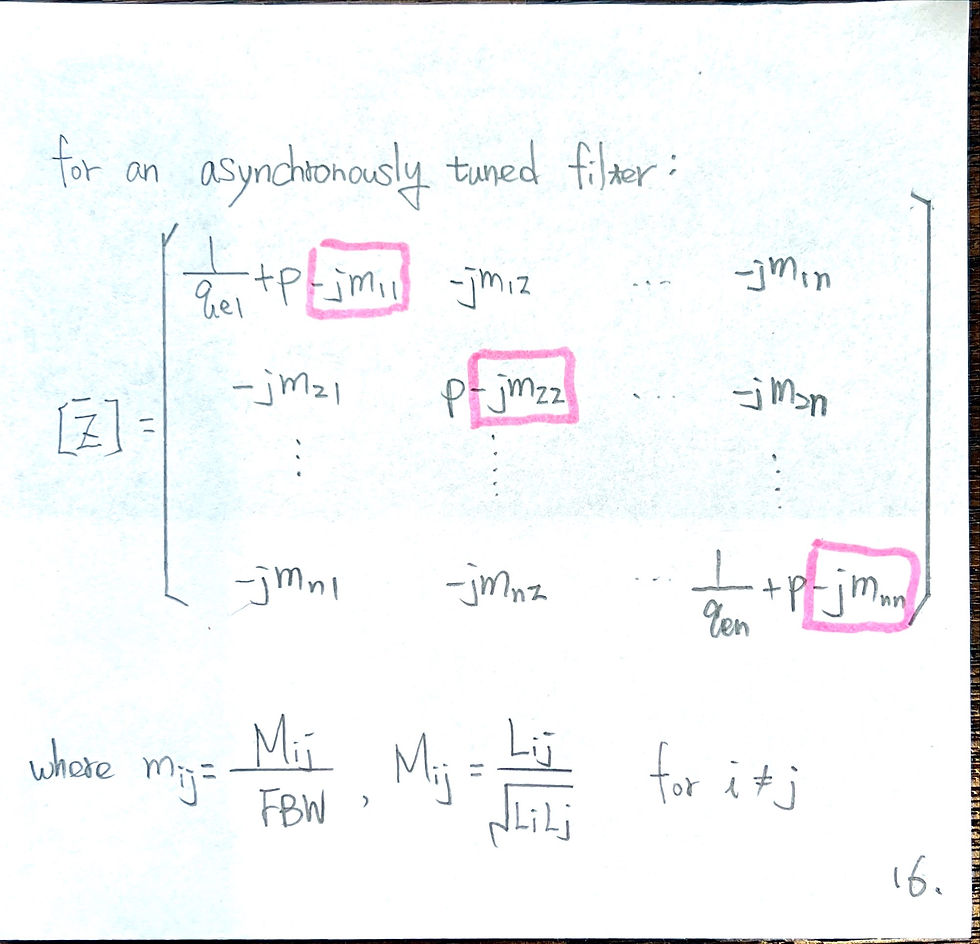 for an asynchronously tuned filter:
[Z̄] = [ 1/qe1 + p - jm11   -jm12   ...   -jm1n
-jm21   p - jm22   ...   -jm2n
⋮   ⋮   ⋮
-jmn1   -jmn2   ...   1/qen + p - jmnn ]
where mij = Mij/FBW , Mij = Lij/√LiLj for i ≠ j
16.